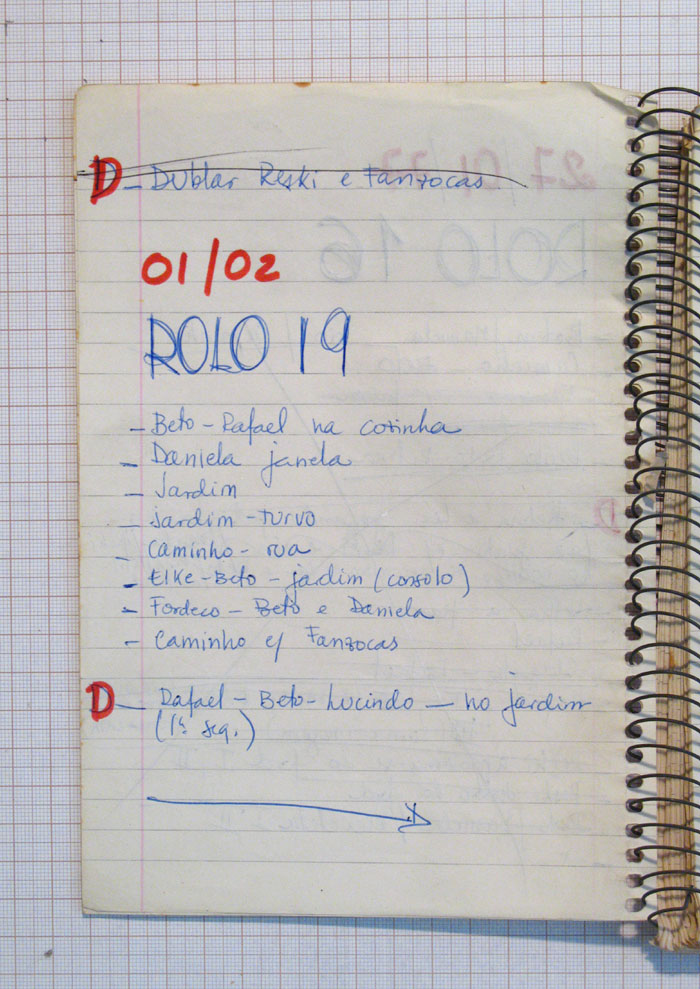 D - Dublar Reski e Fanzocas
01/02
ROLO 19
- Beto - Rafael na cozinha
- Daniela janela
- Jardim
- jardim - turvo
- Caminho - rua
- Elke - Beto - jardim (consolo)
- Fordeco - Beto e Daniela
- Caminho c/ Fanzocas
D - Rafael - Beto - Lucindo - no jardim
(1ª seq.)
27/01/
ROLO 16